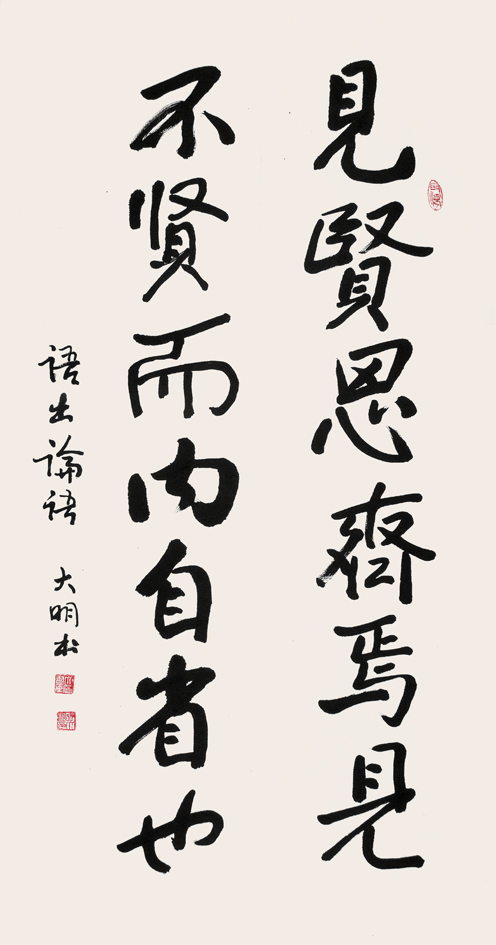 見賢思齊焉見
不賢而内自省也
語出論語 大明